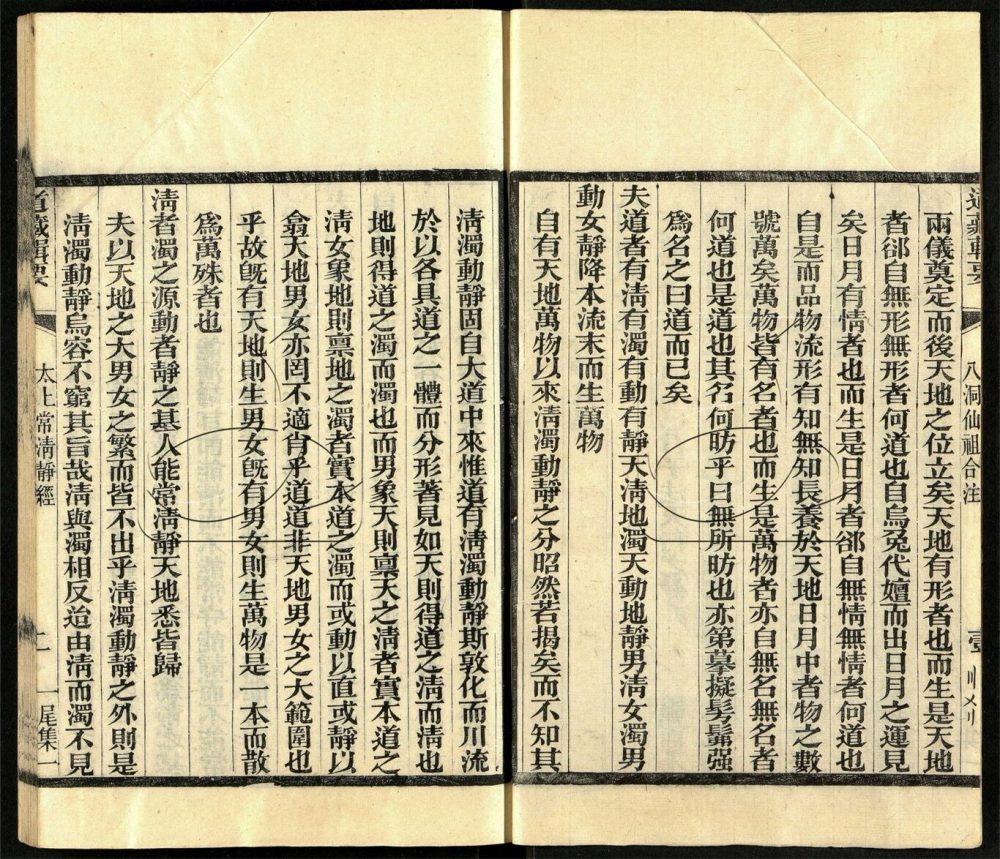 兩儀奠定而後天地之位立矣天地有形者也而生是天地
者郤自無形無形者何道也自烏兔代嬗而出日月之運見
矣日月有情者也而生是日月者郤自無情無情者何道也
自是而品物流形有知無知長養於天地日月中者物之數
號萬矣萬物皆有名者也而生是萬物者亦自無名無名者
何道也是道也其名何昉乎曰無所昉也亦第摹擬髣髴强
爲名之曰道而已矣
夫道者有淸有濁有動有靜天淸地濁天動地靜男淸女濁男
動女靜降本流末而生萬物
自有天地萬物以來淸濁動靜之分昭然若揭矣而不知其
淸濁動靜固自大道中來惟道有淸濁動靜斯敦化而川流
於以各具道之一體而分形著見如天則得道之淸而淸也
地則得道之濁而濁也而男象天則稟天之淸者實本道之
淸女象地則稟地之濁者實本道之濁而或動以直或靜以
翕天地男女亦罔不適肖乎道道非天地男女之大範圍也
乎故旣有天地則生男女旣有男女則生萬物是一本而散
爲萬殊者也
淸者濁之源動者靜之基人能常淸靜天地悉皆歸
夫以天地之大男女之繁而皆不出乎淸濁動靜之外則是
淸濁動靜烏容不窮其旨哉淸與濁相反迨由淸而濁不見
道藏輯要
太上常淸靜經
二
尾集一
八洞仙祖合注